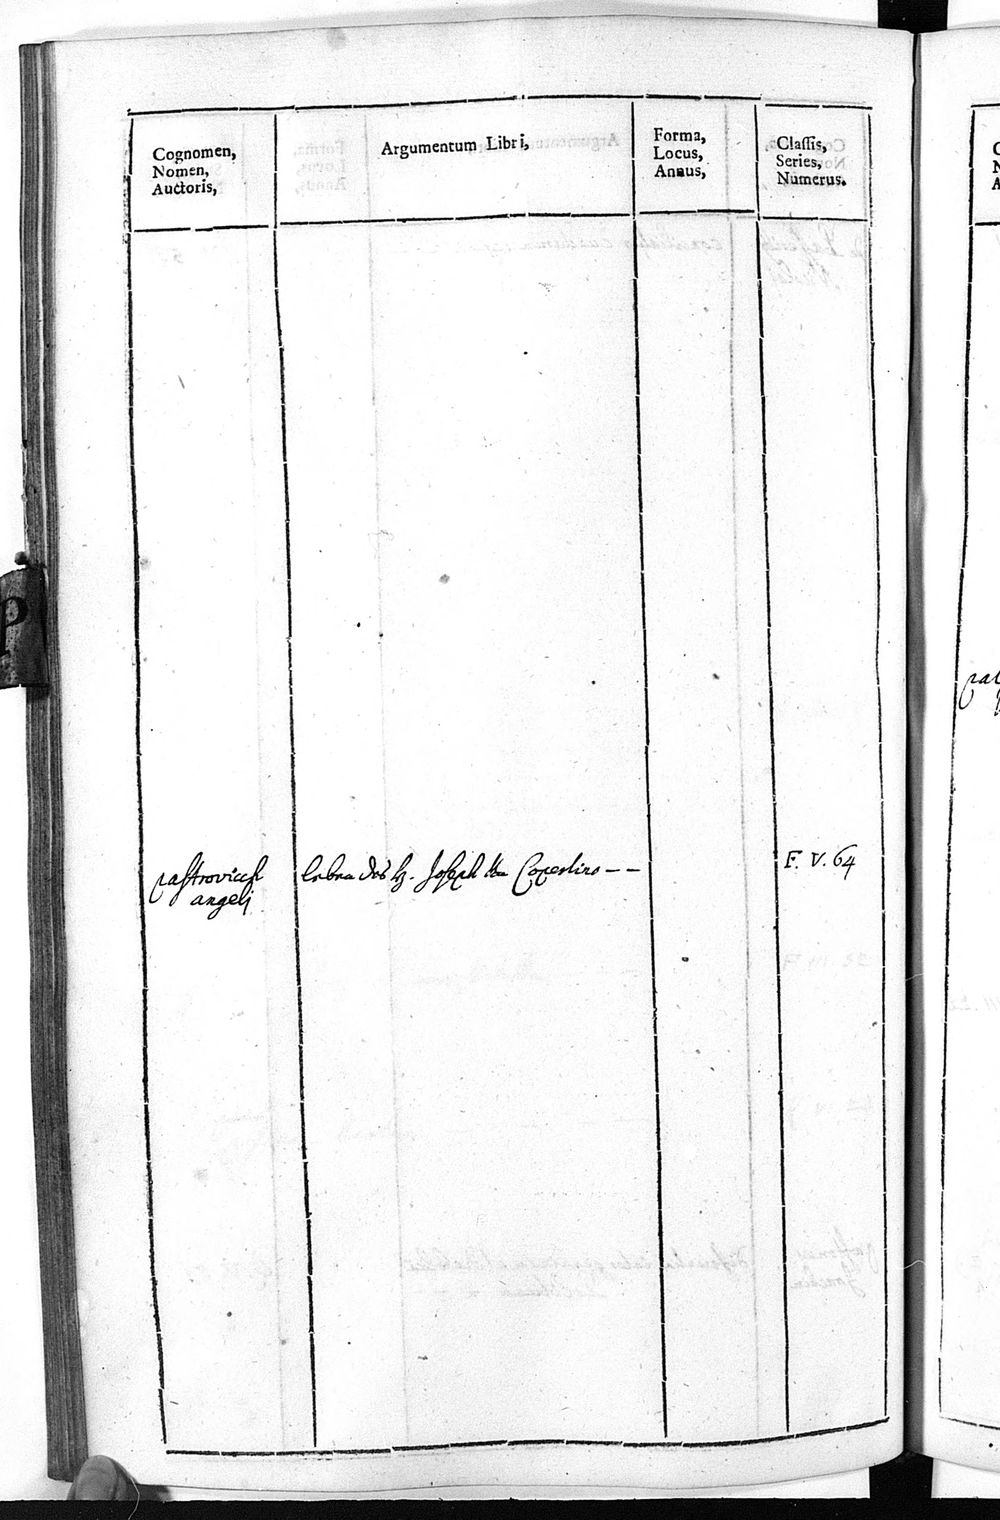 Cognomen,
Nomen,
Auctoris,
Argumentum Libri,
Forma,
Locus,
Annus,
Classis,
Series,
Numerus.
pastrovicch
angeli
leben des h. Joseph von Copertino - -
F. V. 64
P